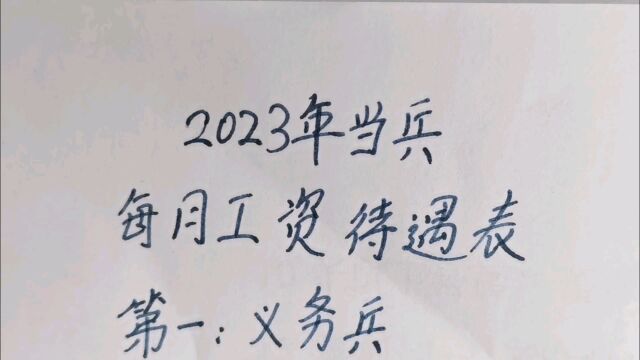 2023年当兵
每月工资待遇表
第一:义务兵